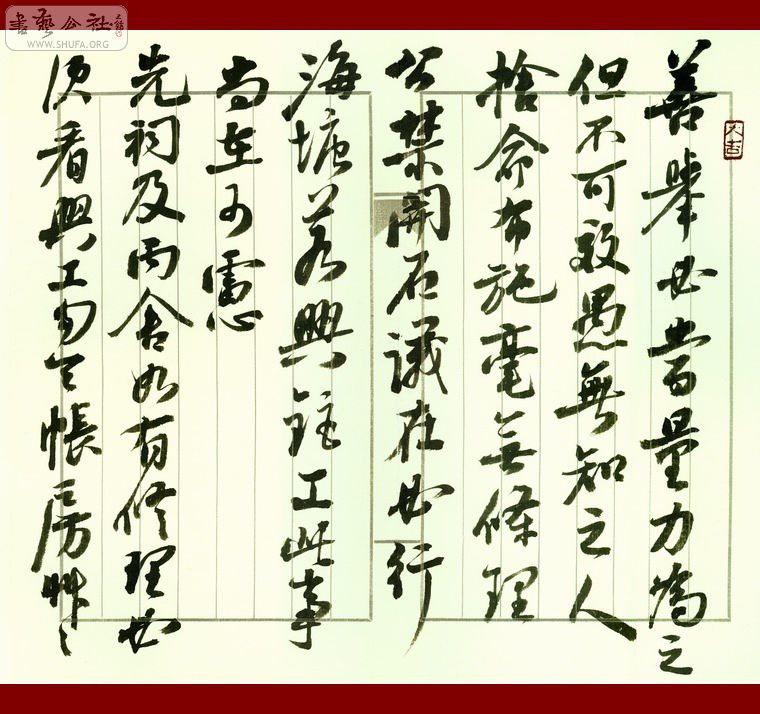 書藝公社
WWW.SHUFA.ORG
大吉
善舉必當量力為之
但不可效愚無知之人
捨命布施毫無條理
公禁開石議在必行
海塘若興鉅工此事
尚在可慮
先祠及丙舍如有修理必
須看興工勿令帳房艸〻